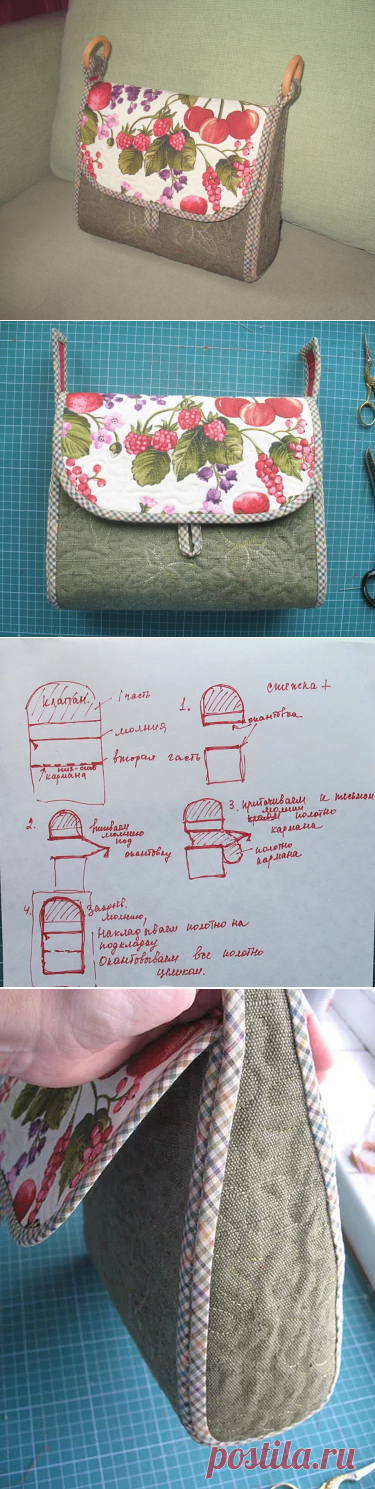 клапан.
1 часть
молния
вторая часть
низ-
кармана
1.
стежка +
окантовка
2.
вшиваем
молнию
под
окантовку
3. притачиваем к тесьмам
молнии
полотно
кармана
полотно
кармана
4.
Закрыв.
молнию,
Накладываем полотно на
подкладку
Окантовываем все полотно
целиком.
postila.ru